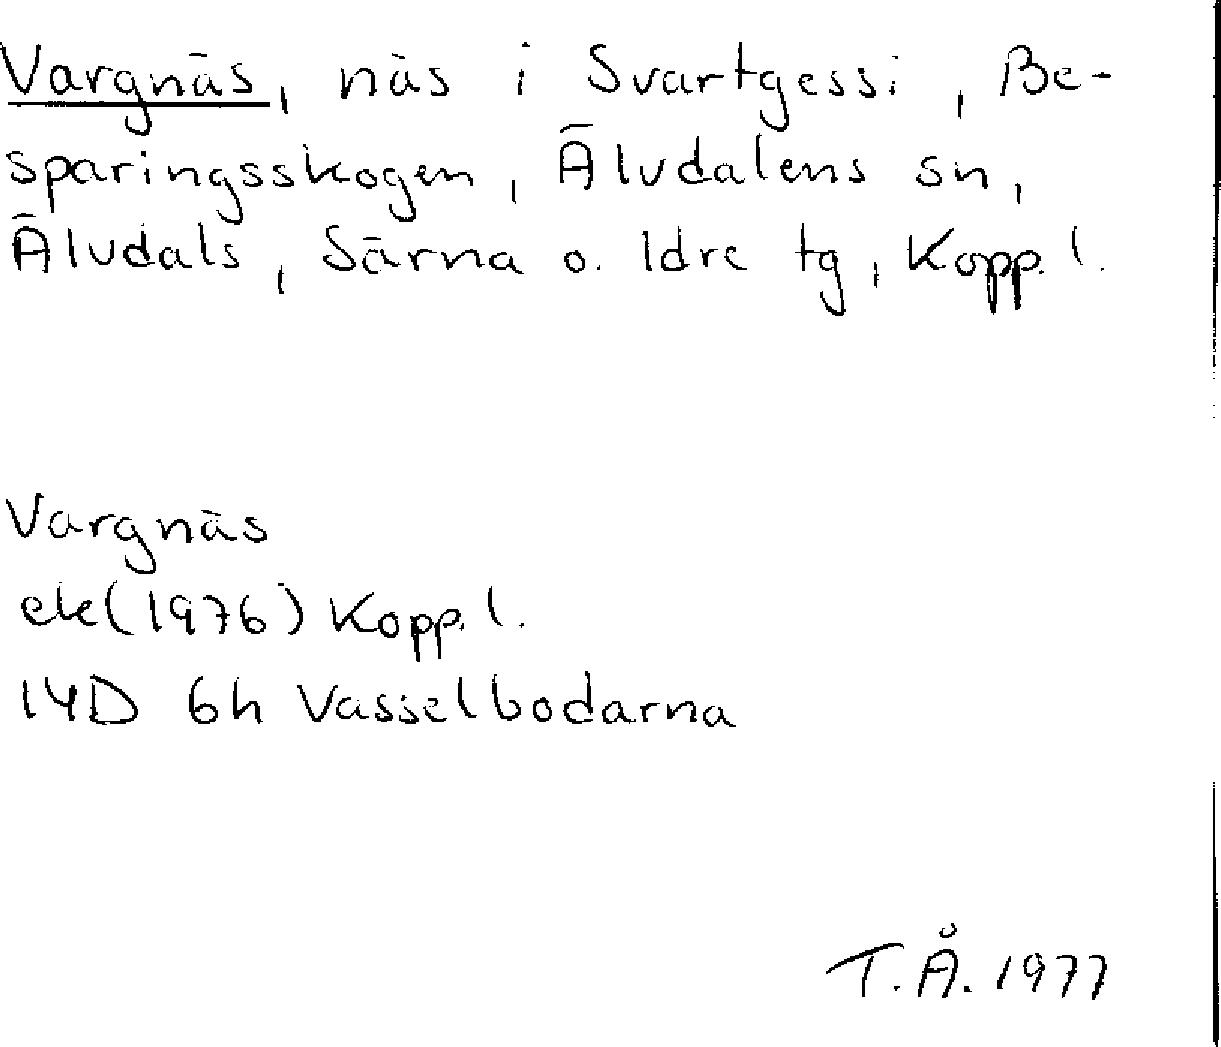 Vargnäs, näs i Svartgessi, Be-
sparingsskogen, Älvdalens sn,
Älvdals, Särna o. Idre tg, Kopp. l.
Vargnäs
ek (1976) Kopp. l.
14D 6h Vasselbodarna
T.Å. 1977